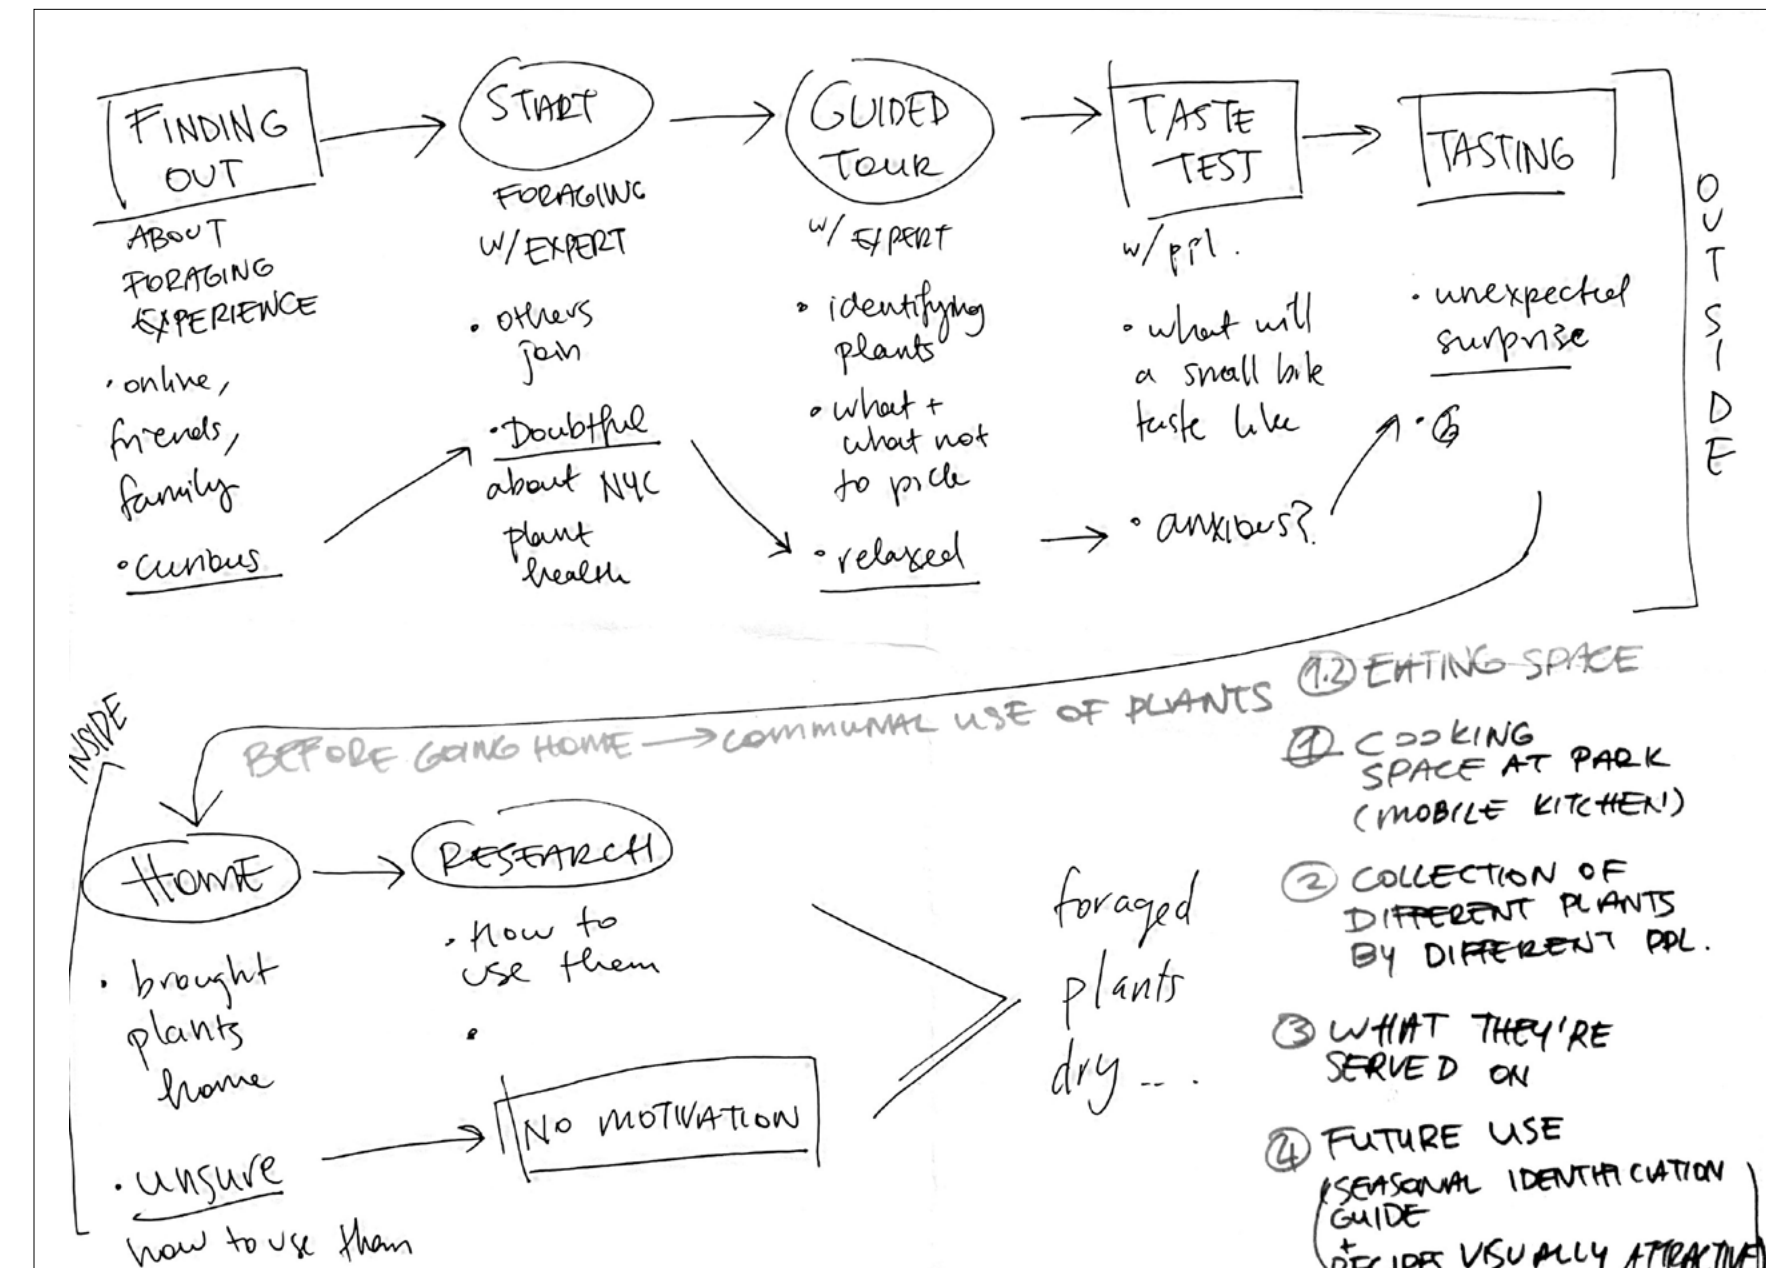 FINDING
OUT
ABOUT
FORAGING
EXPERIENCE
• online,
friends,
family
• curious
START
FORAGING
W/ EXPERT
• others
join
• Doubtful
about NYC
plant
health
GUIDED
TOUR
W/ EXPERT
• identifying
plants
• what +
what not
to pick
• relaxed
TASTE
TEST
w/
• what will
a small bite
taste like
• anxious?
TASTING
• unexpected
surprise
OUTSIDE
INSIDE
BEFORE GOING HOME → COMMUNAL USE OF PLANTS
HOME
• brought
plants
home
• unsure
how to use them
RESEARCH
• How to
use them
NO MOTIVATION
foraged
plants
dry ....
1.2 EATING SPACE
1 COOKING
SPACE AT PARK
(MOBILE KITCHEN)
2 COLLECTION OF
DIFFERENT PLANTS
BY DIFFERENT PPL.
3 WHAT THEY'RE
SERVED ON
4 FUTURE USE
(SEASONAL IDENTIFICIATION
GUIDE
+
RECIPES VISUALLY ATTRACTIVE)